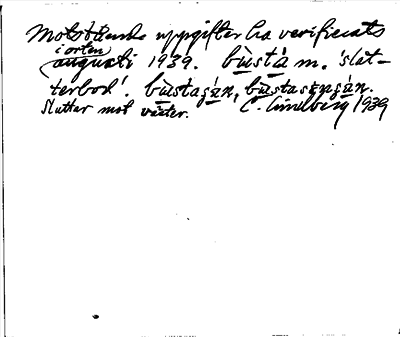 Motstående uppgifter ha verificerats
i orten
augusti 1939. bùstá m. 'slåt-
terbod'. bùstaşán, bùstaşnşán.
Sluttar mot väster. C. Lindberg 1939